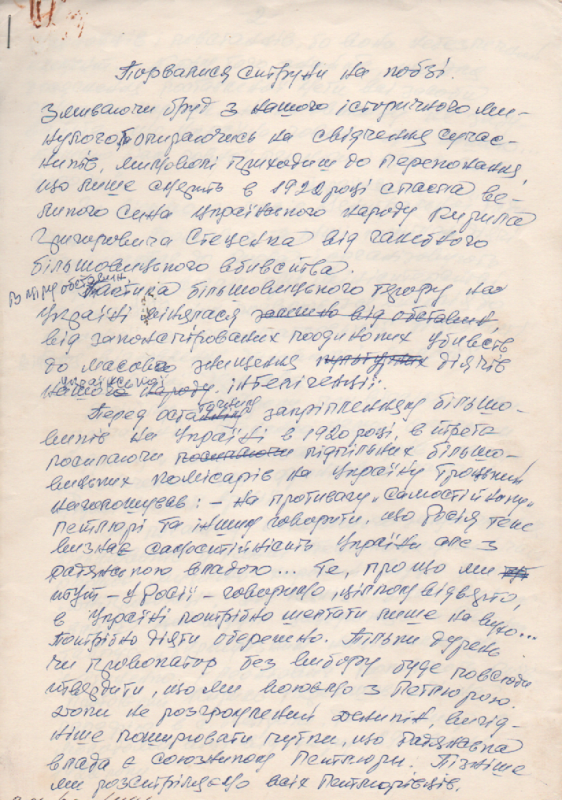 Порвалися струни на кобзі.
Змиваючи бруд з нашого історичного ми-
нулого, опираючись на свідчення сучас-
ників, мимоволі приходиш до переконання,
що лише смерть в 1922 році спасла ве-
ликого сина українського народу Кирила
Григоровича Стеценка від ганебного
більшовицького вбивства.
Тактика більшовицького терору на
Україні мінялася залежно від обставин,
від законспірованих поодиноких убивств
до масового знищення діячів
української нашого народу. інтелігенції.
Перед остаточним закріпленням більшо-
виків на Україні в 1920 році, в
посилаючи посилаючи підпільних більшо-
вицьких комісарів на Україну Троцький
наголошував: – на противагу „самостійнику"
Петлюрі та іншим говорити, що Росія теж
визнає самостійність України але з
радянською владою... Те, про що ми
тут – у Росії – говоримо цілком відверто,
в Україні потрібно шептати лише на вухо...
Потрібно діяти обережно. Тільки дурень
чи провокатор без вибору буде повсюди
твердити, що ми воюємо з Петлюрою.
поки не розгромлений Денікін, вигід-
ніше поширювати чутки, що радянська
влада є союзником Петлюри. Пізніше
ми розстріляємо всіх петлюрівців.